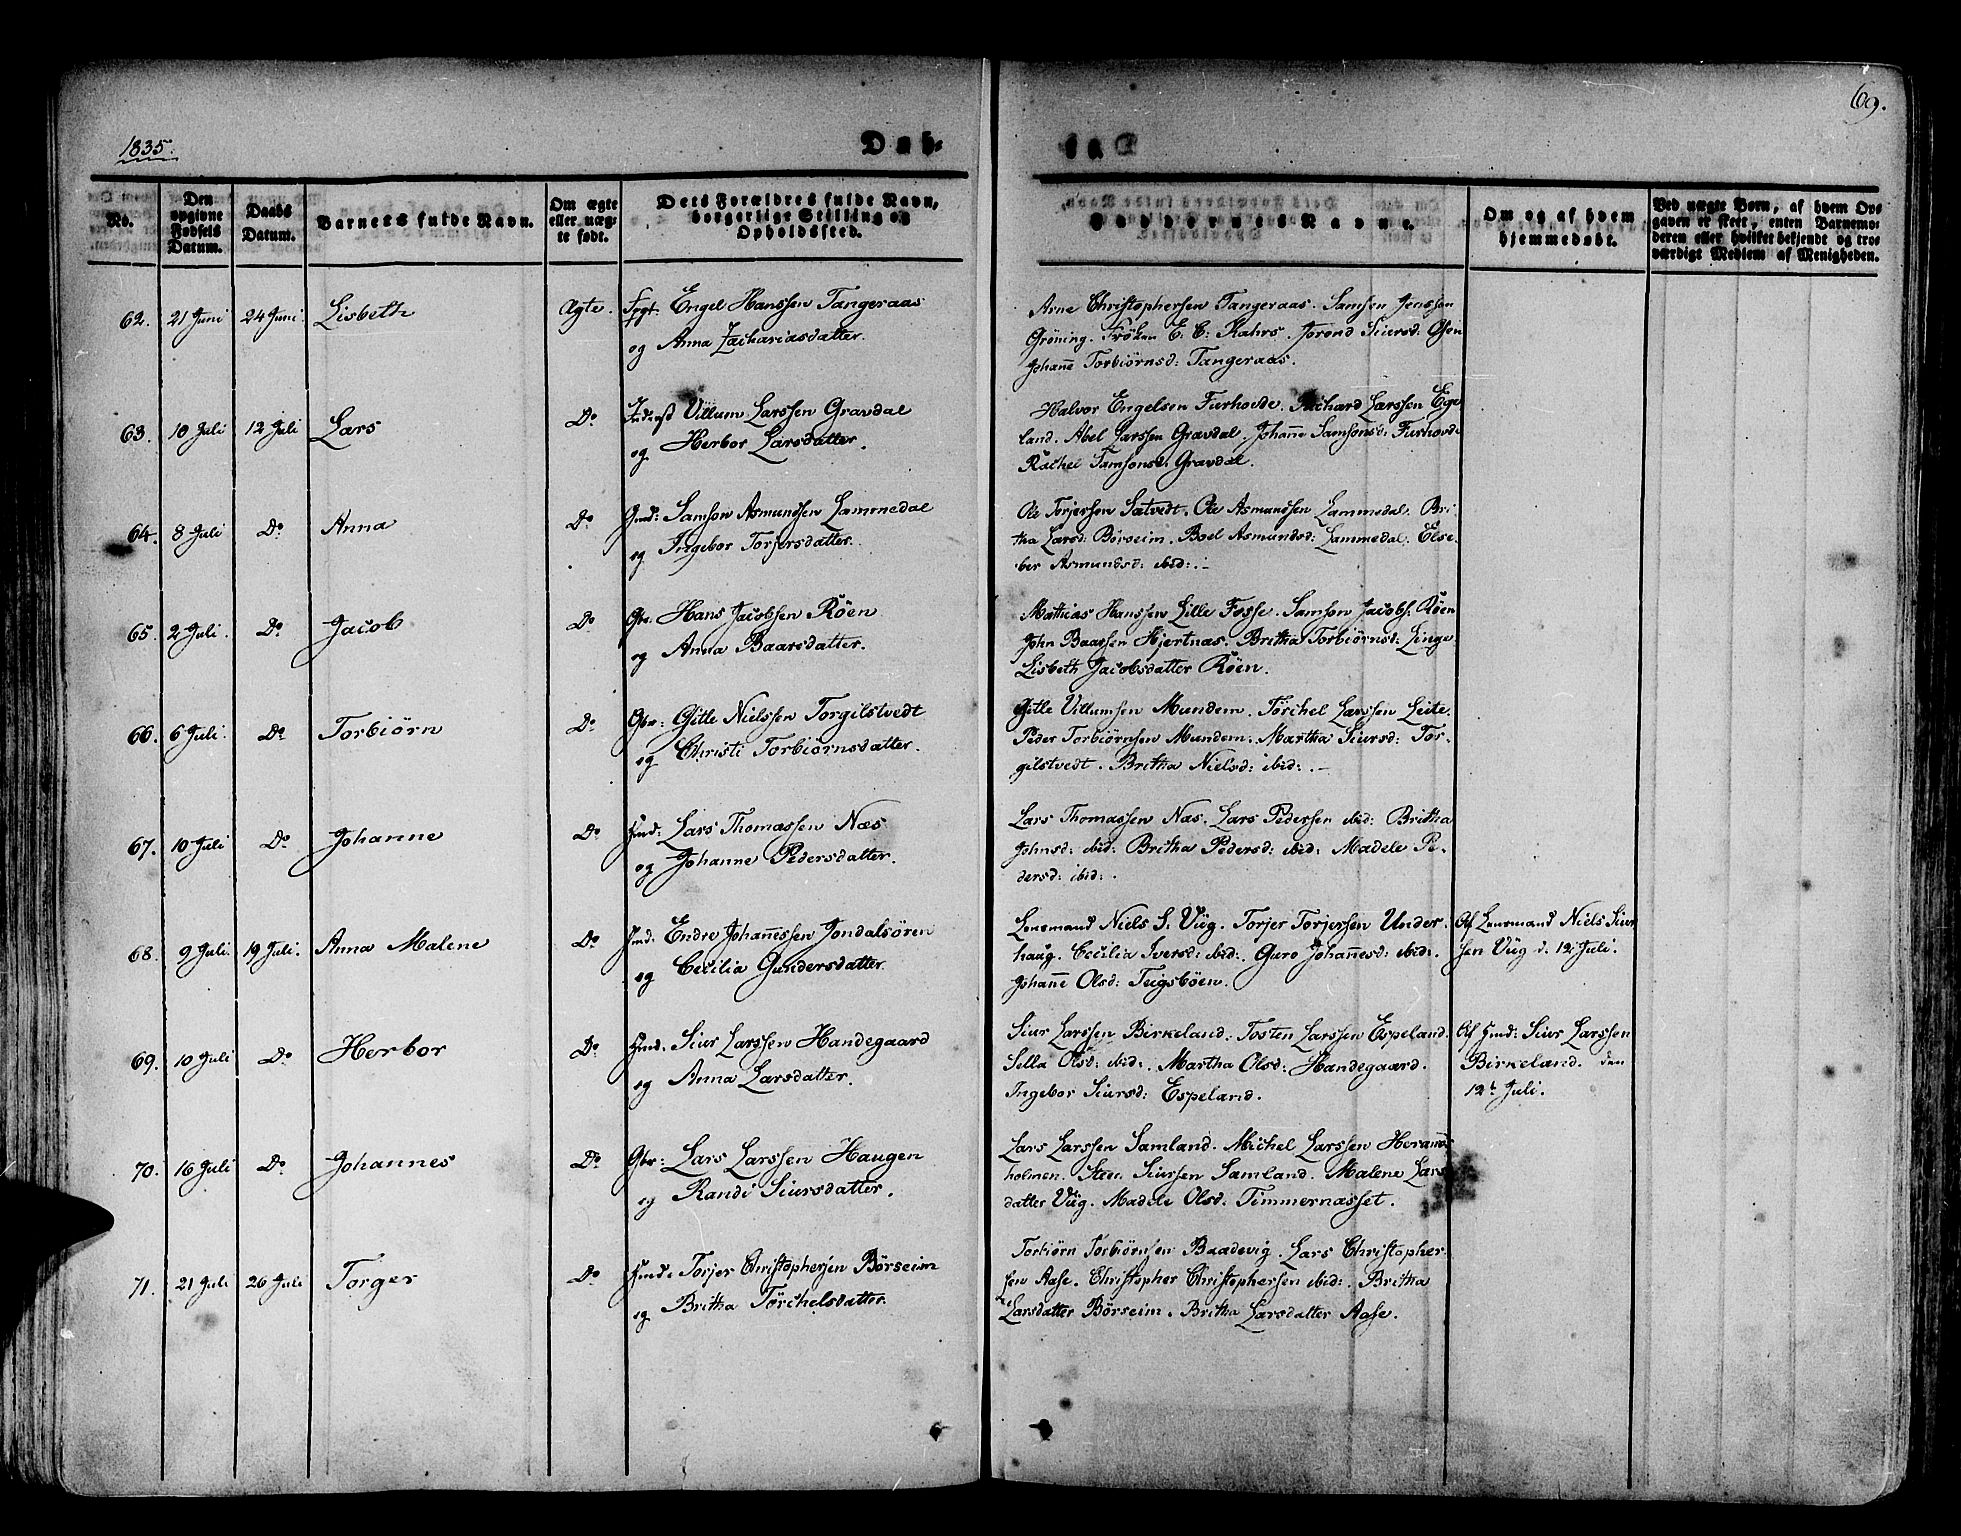 69.
1835.
Daab
No.
Den opgivne Fødsels Datum.
Daabs Datum.
Barnets fulde Navn.
Om ægte eller uægte født.
Dets Forældres fulde Navn, borgerlige Stilling og Opholdssted.
Faddernes Navne.
Om og af hvem hjemmedøbt.
Ved uægte Børn, af hvem Opgaven er skeet, enten Barnemoderen eller hvilket bekjendt og troværdigt Medlem af Menigheden.
62. 21 Juni 24 Juni Lisbeth Ægte. Engel Hanssen Tangeraas
og Anna Zachariasdatter.
Arne Christophersen Tangeraas. Samson Jenssen
Gröning. Fröken E. C: Kahrs. Jorond Siursd: Osen
Johanne Torbiörnsd: Tangeraas.
63. 10 Juli 12 Juli Lars Do Inderst Villum Larssen Gravdal
og Herbor Larsdatter.
Halvor Engelsen Furhovde. Richard Larssen Eige
land. Abel Larssen Gravdal. Johanne Samsonsd: Furhovde
Rachel Samsonsd: Gravdal.
64. 8 Juli Do Anna Do Hmd: Samson Asmundsen Lammedal
og Ingebor Torjersdatter.
Ole Torjersen Sætvedt. Ole Asmundsen Lammedal. Bri-
tha Larsd: Börseim. Boel Asmundsd: Lammedal. Else-
ber Asmundsd: ibid:.—
65. 2 Juli. Do Jacob Do Gbr. Hans Jacobsen Röen
og Anna Baarsdatter.
Mathias Hanssen Lille Fosse. Samson Jacobs: Röen
John Baarsen Hjertnæs. Britha Torbiörnsd: Linge
Lisbeth Jacobsdatter Röen.
66. 6 Juli. Do Torbiörn Do Gbr: Gitle Nielssen Torgilstvedt
og Christi Torbiörnsdatter.
Gitle Villumsen Mundem. Törchel Larssen Leite.
Peder Torbiörnsen Mundem. Martha Siursd: Tor-
gilstvedt. Britha Nielsd: ibid:.—
67. 10 Juli Do Johanne Do Hmd: Lars Thomassen Næs.
og Johanne Pedersdatter.
Lars Thomassen Næs. Lars Pedersen ibid: Britha
Johnsd: ibid: Britha Pedersd: ibid: Madele Pe-
dersd: ibid:.
68. 9 Juli. 19 Juli. Anna Malene Do Hmd: Endre Johannessen Jondalsören
og Cecilia Gundersdatter.
Lensmand Niels S. Viig. Torjer Torjersen Under-
haug. Cecilia Iversd: ibid:. Guro Johannesd: ibid:.
Johanne Olsd: Teigsböen.
Af Lensmand Niels Siur
sen Viig d. 12 Juli.
69. 10 Juli Do Herbor Do Hmd. Siur Larssen Handegaard
og Anna Larsdatter.
Siur Larssen Birkeland. Tosten Larssen Espeland.
Sella Olsd: ibid:. Martha Olsd: Handegaard.
Ingebor Siursd: Espeland.
Af Hmd: Siur Larssen
Birkeland. den
12t Juli.
70. 16 Juli Do Johannes Do Gbr: Lars Larssen Haugen
og Randi Siursdatter.
Lars Larssen Samland. Michel Larssen Herands
holmen. Siurssen Samland. Malene Lars
datter Viig. Madele Olsd: Timmernæsset.
71. 21 Juli 26 Juli Torger Do Hmd: Torjer Christophersen Börseim
og Britha Törchelsdatter.
Torbiörn Torbiörnsen Baadevig. Lars Christopher-
sen Aase. Christopher Christophersen ibid:. Britha
Larsdatter Börseim. Britha Larsdatter Aase.